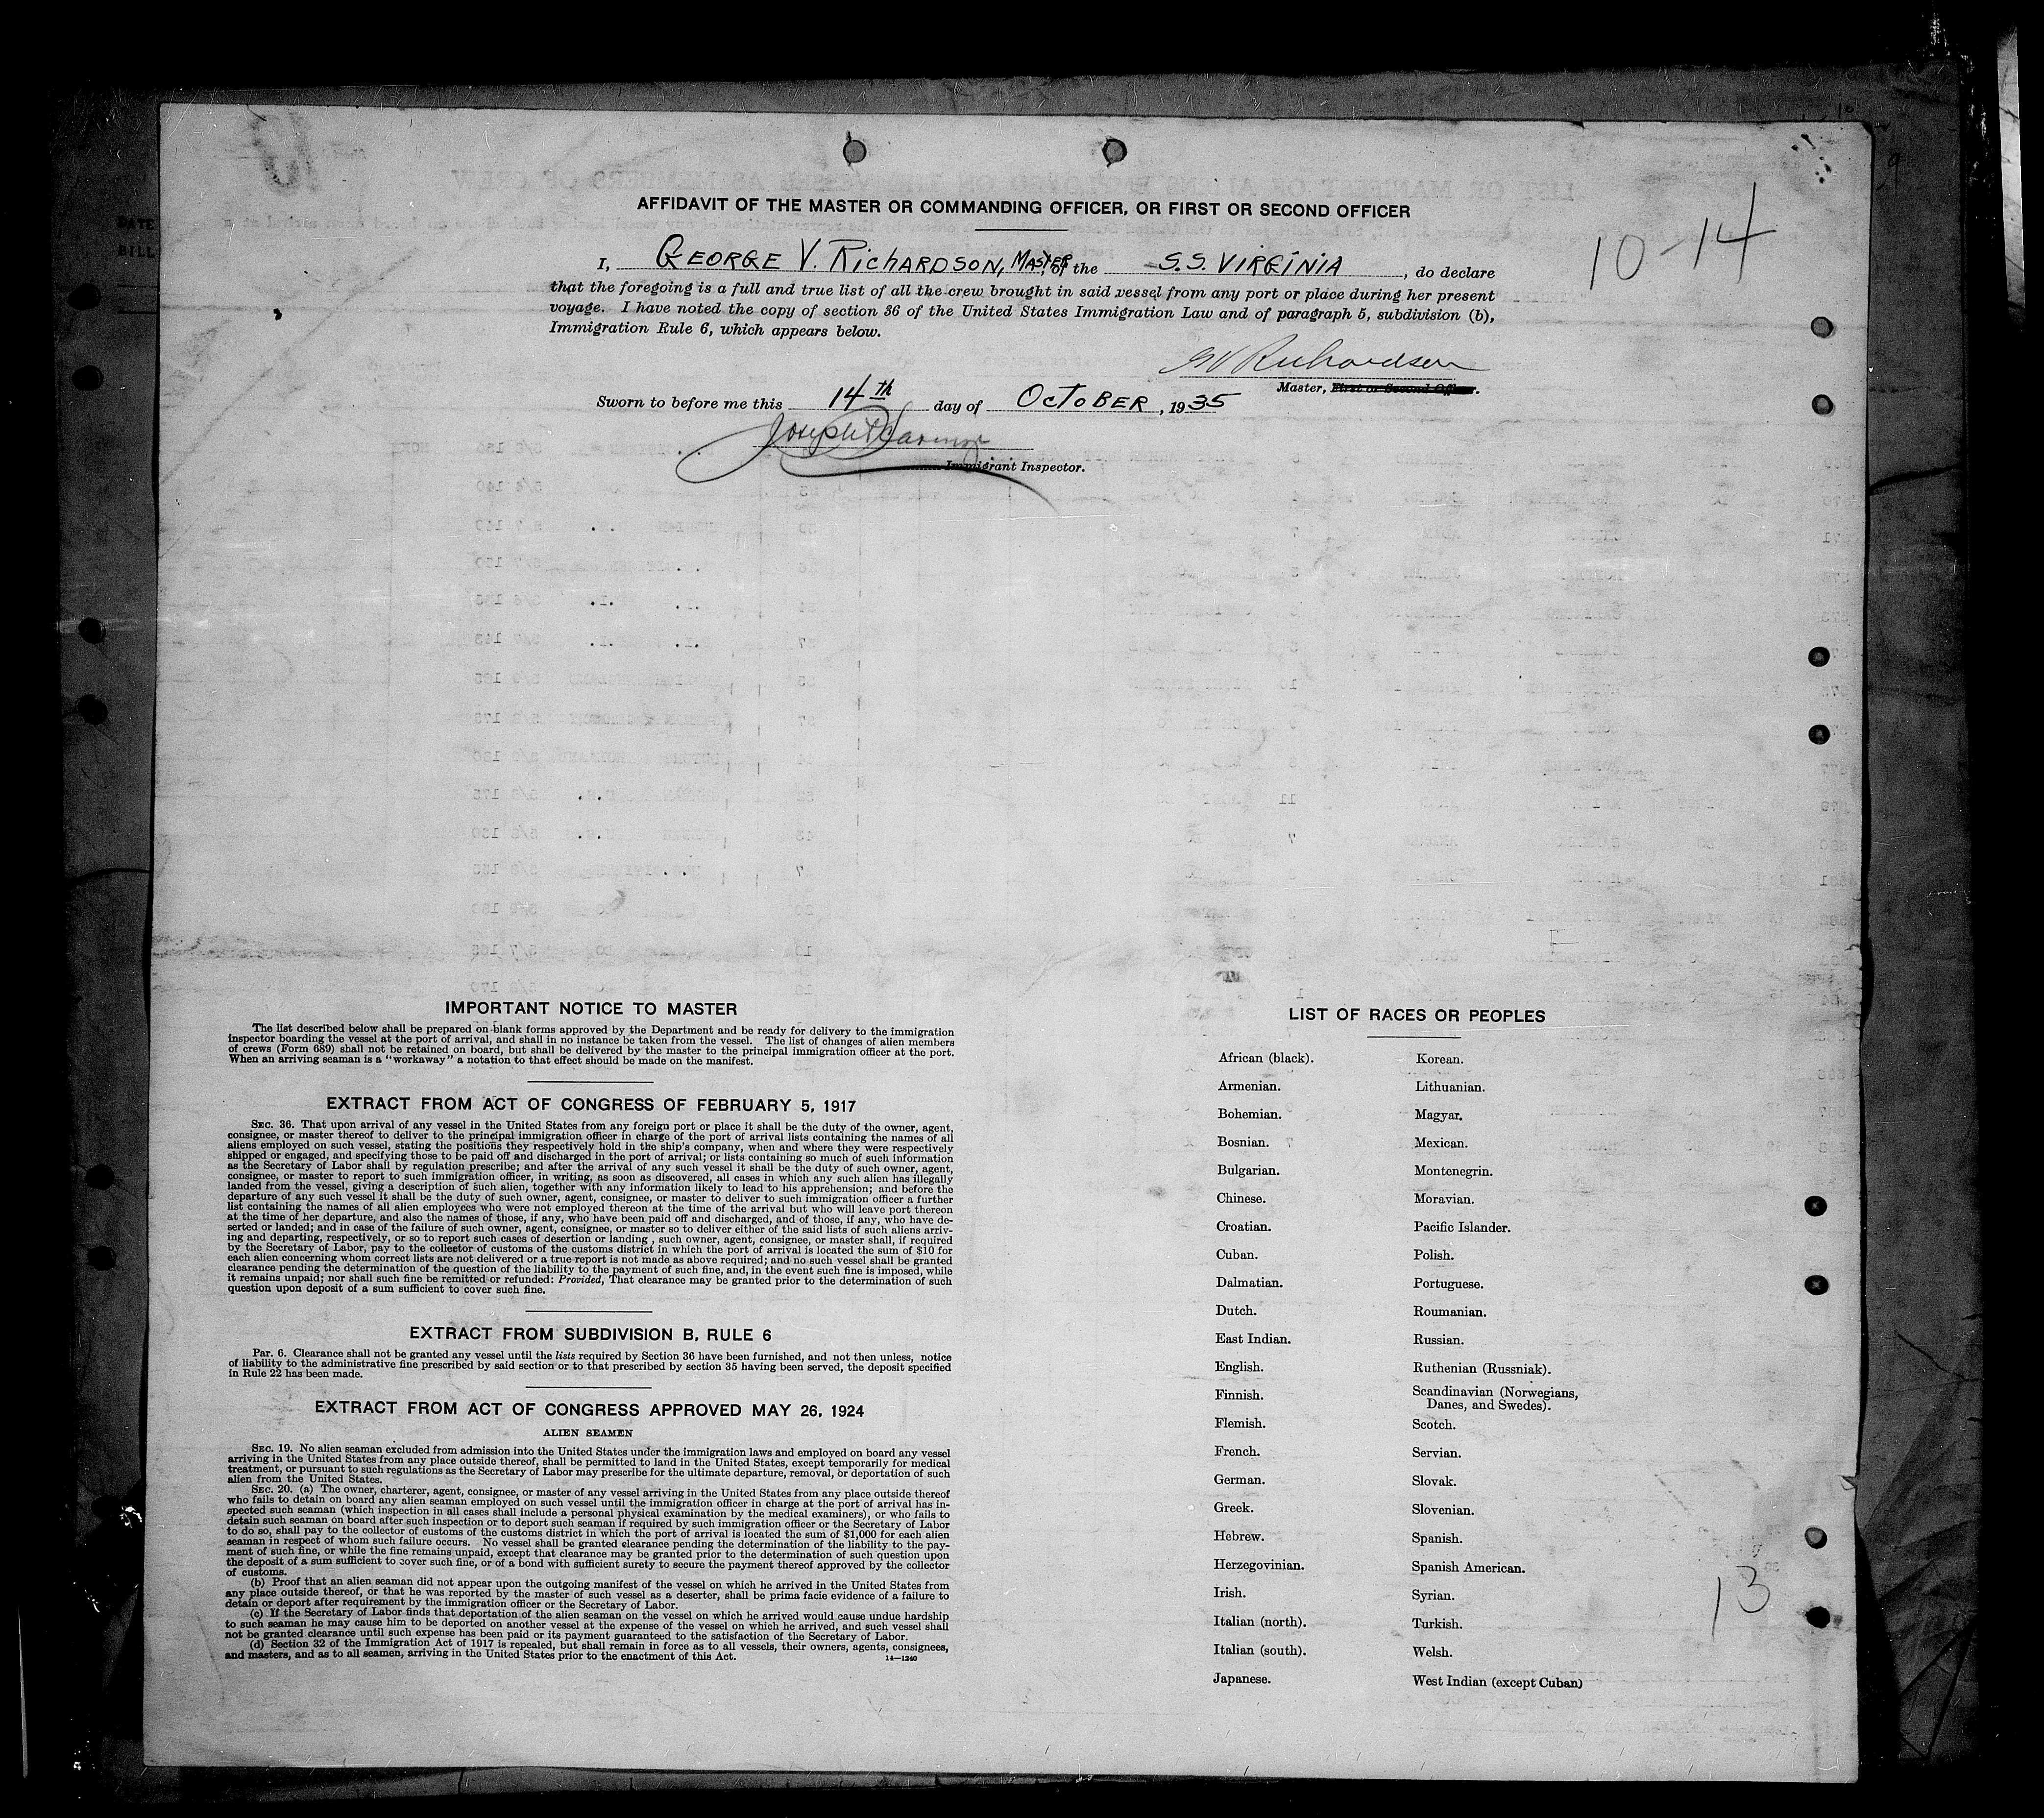 AFFIDAVIT OF THE MASTER OR COMMANDING OFFICER, OR FIRST OR SECOND OFFICER
10-14
I, GEORGE V. RICHARDSON, MASTER of the S.S. VIRGINIA, do declare
that the foregoing is a full and true list of all the crew brought in said vessel from any port or place during her present
voyage. I have noted the copy of section 36 of the United States Immigration Law and of paragraph 5, subdivision (b),
Immigration Rule 6, which appears below.
G V Richardson
Master, First or Second Officer.
Sworn to before me this 14th day of OCTOBER, 1935
Joseph
Immigrant Inspector.
IMPORTANT NOTICE TO MASTER
The list described below shall be prepared on blank forms approved by the Department and be ready for delivery to the immigration
inspector boarding the vessel at the port of arrival, and shall in no instance be taken from the vessel. The list of changes of alien members
of crews (Form 689) shall not be retained on board, but shall be delivered by the master to the principal immigration officer at the port.
When an arriving seaman is a "workaway" a notation to that effect should be made on the manifest.
EXTRACT FROM ACT OF CONGRESS OF FEBRUARY 5, 1917
SEC. 36. That upon arrival of any vessel in the United States from any foreign port or place it shall be the duty of the owner, agent,
consignee, or master thereof to deliver to the principal immigration officer in charge of the port of arrival lists containing the names of all
aliens employed on such vessel, stating the positions they respectively hold in the ship's company, when and where they were respectively
shipped or engaged, and specifying those to be paid off and discharged in the port of arrival; or lists containing so much of such information
as the Secretary of Labor shall by regulation prescribe; and after the arrival of any such vessel it shall be the duty of such owner, agent,
consignee, or master to report to such immigration officer, in writing, as soon as discovered, all cases in which any such alien has illegally
landed from the vessel, giving a description of such alien, together with any information likely to lead to his apprehension; and before the
departure of any such vessel it shall be the duty of such owner, agent, consignee, or master to deliver to such immigration officer a further
list containing the names of all alien employees who were not employed thereon at the time of the arrival but who will leave port thereon
at the time of her departure, and also the names of those, if any, who have been paid off and discharged, and of those, if any, who have de-
serted or landed; and in case of the failure of such owner, agent, consignee, or master so to deliver either of the said lists of such aliens arriv-
ing and departing, respectively, or so to report such cases of desertion or landing , such owner, agent, consignee, or master shall, if required
by the Secretary of Labor, pay to the collector of customs of the customs district in which the port of arrival is located the sum of $10 for
each alien concerning whom correct lists are not delivered or a true report is not made as above required; and no such vessel shall be granted
clearance pending the determination of the question of the liability to the payment of such fine, and, in the event such fine is imposed, while
it remains unpaid; nor shall such fine be remitted or refunded: Provided, That clearance may be granted prior to the determination of such
question upon deposit of a sum sufficient to cover such fine.
EXTRACT FROM SUBDIVISION B, RULE 6
Par. 6. Clearance shall not be granted any vessel until the lists required by Section 36 have been furnished, and not then unless, notice
of liability to the administrative fine prescribed by said section or to that prescribed by section 35 having been served, the deposit specified
in Rule 22 has been made.
EXTRACT FROM ACT OF CONGRESS APPROVED MAY 26, 1924
ALIEN SEAMEN
SEC. 19. No alien seaman excluded from admission into the United States under the immigration laws and employed on board any vessel
arriving in the United States from any place outside thereof, shall be permitted to land in the United States, except temporarily for medical
treatment, or pursuant to such regulations as the Secretary of Labor may prescribe for the ultimate departure, removal, or deportation of such
alien from the United States.
SEC. 20. (a) The owner, charterer, agent, consignee, or master of any vessel arriving in the United States from any place outside thereof
who fails to detain on board any alien seaman employed on such vessel until the immigration officer in charge at the port of arrival has in-
spected such seaman (which inspection in all cases shall include a personal physical examination by the medical examiners), or who fails to
detain such seaman on board after such inspection or to deport such seaman if required by such immigration officer or the Secretary of Labor
to do so, shall pay to the collector of customs of the customs district in which the port of arrival is located the sum of $1,000 for each alien
seaman in respect of whom such failure occurs. No vessel shall be granted clearance pending the determination of the liability to the pay-
ment of such fine, or while the fine remains unpaid, except that clearance may be granted prior to the determination of such question upon
the deposit of a sum sufficient to cover such fine, or of a bond with sufficient surety to secure the payment thereof approved by the collector
of customs.
(b) Proof that an alien seaman did not appear upon the outgoing manifest of the vessel on which he arrived in the United States from
any place outside thereof, or that he was reported by the master of such vessel as a deserter, shall be prima facie evidence of a failure to
detain or deport after requirement by the immigration officer or the Secretary of Labor.
(c) If the Secretary of Labor finds that deportation of the alien seaman on the vessel on which he arrived would cause undue hardship
to such seaman he may cause him to be deported on another vessel at the expense of the vessel on which he arrived, and such vessel shall
not be granted clearance until such expense has been paid or its payment guaranteed to the satisfaction of the Secretary of Labor.
(d) Section 32 of the Immigration Act of 1917 is repealed, but shall remain in force as to all vessels, their owners, agents, consignees,
and masters, and as to all seamen, arriving in the United States prior to the enactment of this Act.
14—1240
LIST OF RACES OR PEOPLES
African (black).
Armenian.
Bohemian.
Bosnian.
Bulgarian.
Chinese.
Croatian.
Cuban.
Dalmatian.
Dutch.
East Indian.
English.
Finnish.
Flemish.
French.
German.
Greek.
Hebrew.
Herzegovinian.
Irish.
Italian (north).
Italian (south).
Japanese.
Korean.
Lithuanian.
Magyar.
Mexican.
Montenegrin.
Moravian.
Pacific Islander.
Polish.
Portuguese.
Roumanian.
Russian.
Ruthenian (Russniak).
Scandinavian (Norwegians,
Danes, and Swedes).
Scotch.
Servian.
Slovak.
Slovenian.
Spanish.
Spanish American.
Syrian.
Turkish.
Welsh.
West Indian (except Cuban)
13